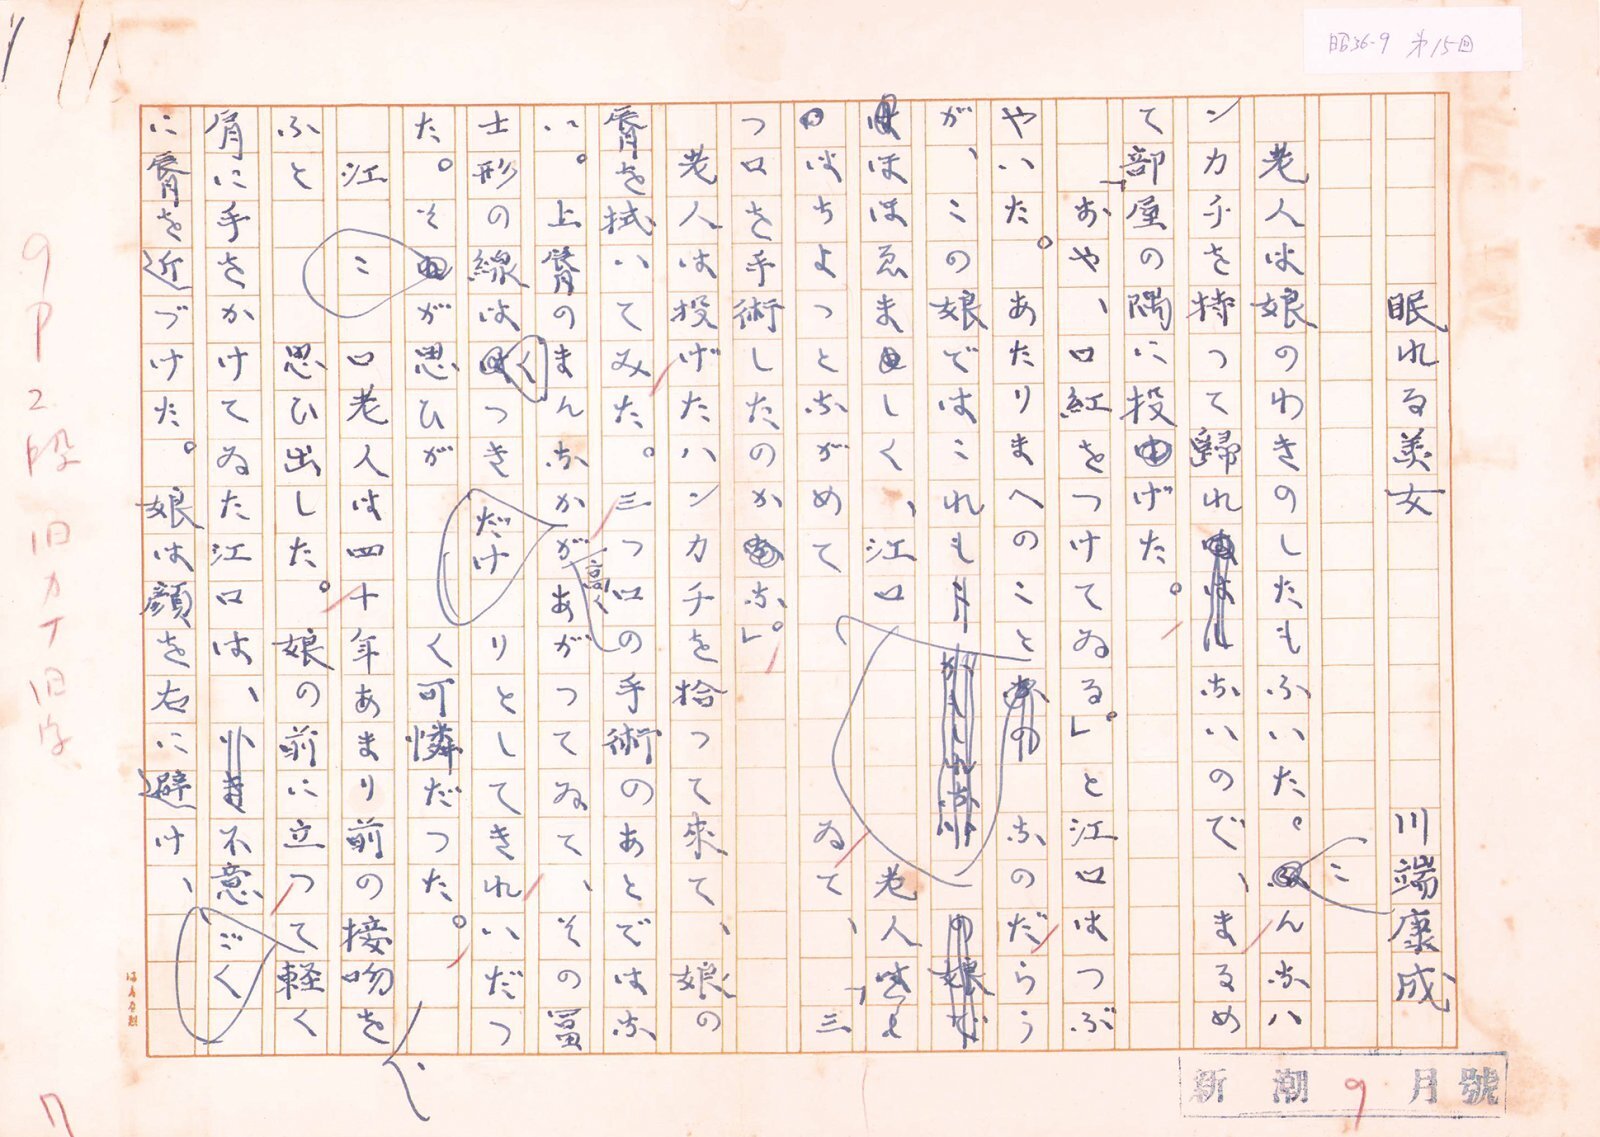 昭36-9 第15回
眠れる美女 川端康成
老人は娘のわきのしたもふいた。こんなハ
ンカチを持つて歸れないので、まるめ
て部屋の隅に投げた。
「おや、口紅をつけてゐる。」と江口はつぶ
やいた。あたりまへのことなのだらう
が、この娘ではこれも
ほほゑましく、江口老人は
ちよつとながめてゐて、「三
つ口を手術したのかな。」
老人は投げたハンカチを拾つて來て、娘の
脣を拭いてみた。三つ口の手術のあとではな
い。上脣のまんなかが高くあがつてゐて、その冨
士形の線はくつきりとしてきれいだつ
た。そこだけが思ひがけ
く可憐だつた。
江口老人は四十年あまり前の接吻を
ふと思ひ出した。娘の前に立つてごく軽く
肩に手をかけてゐた江口は、不意
に脣を近づけた。娘は顔を右に避け、
9P 2段 旧カナ旧字
新潮 9月號